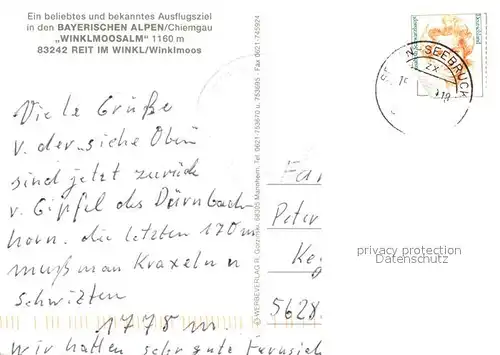 Ein beliebtes und bekanntes Ausflugsziel
in den BAYERISCHEN ALPEN/Chiemgau
„WINKLMOOSALM" 1160 m
83242 REIT IM WINKL/Winklmoos
Viele Grüße
v. der, siehe Oben
sind jetzt zurück
v. Gipfel des Dürnbach-
horn. die letzten 170m
muß man Kraxeln u
schwitzen
1778 m.
Wir hatten sehr gute Fernsich
© WERBEVERLAG R. 68305 Mannheim, Tel. 0621-753670 u. 753695 Fax 0621-745924
SEEBRUCK
zx
Fa
Peter
Ke
5628
privacy protection
Datenschutz